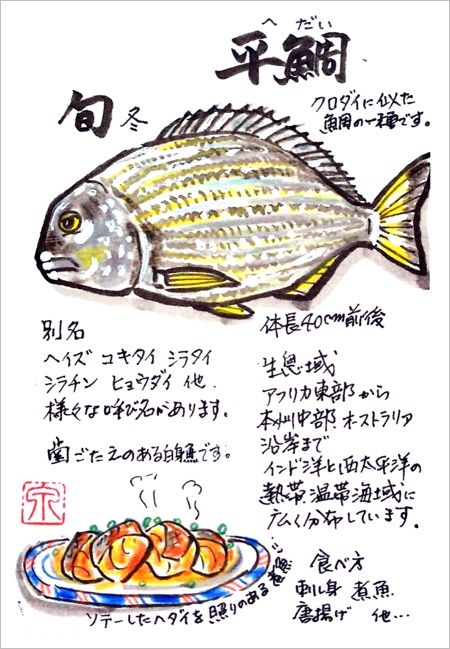 へ だい
平鯛
クロダイに似た
鯛の一種です。
旬 冬
別名
ヘイズ コキダイ シラタイ
シラチン ヒョウダイ 他.
様々な呼び名があります。
歯ごたえのある白身魚です。
体長40cm前後
生息域
アフリカ東部から
本州中部 オーストラリア
沿岸まで
インド洋と西太平洋の
熱帯温帯海域に
広く分布しています。
ソテーしたヘダイを照りのある煮
食べ方
刺し身 煮魚
唐揚げ 他…